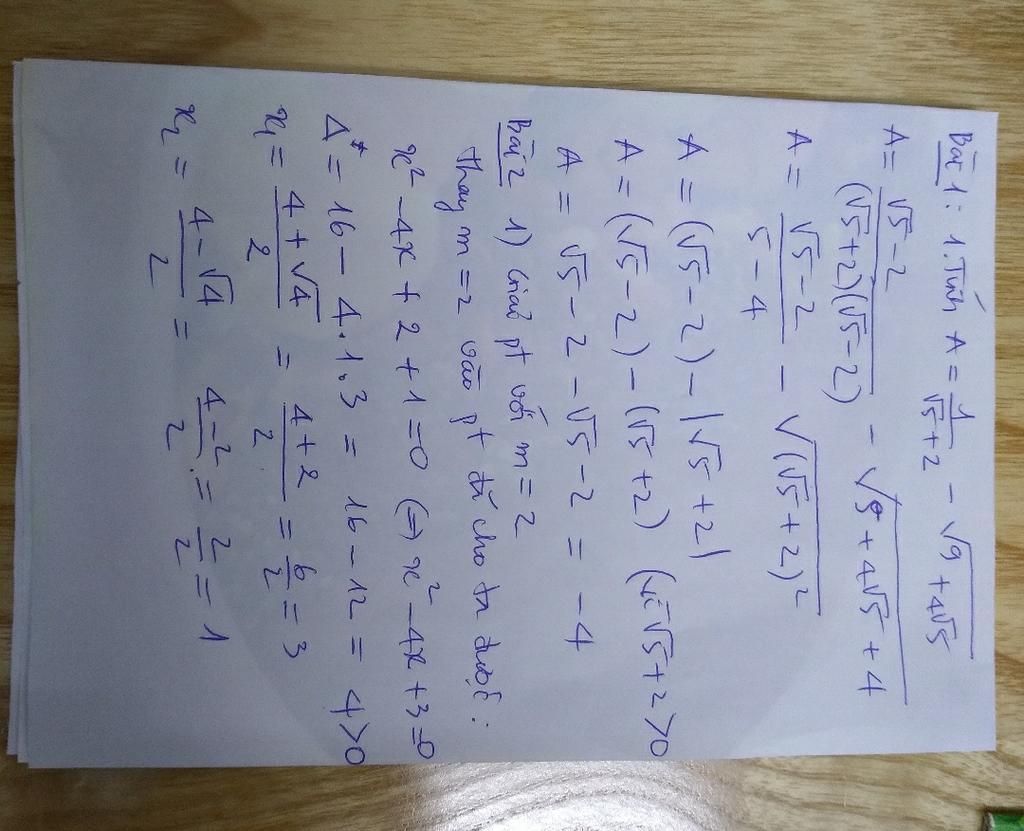 Bài 1: 1. Tính A = 1/(√5+2) - √(9+4√5)
A = (√5-2)/((√5+2)(√5-2)) - √(9+4√5+4)
A = (√5-2)/(5-4) - √((√5+2)²)
A = (√5-2) - |√5+2|
A = (√5-2) - (√5+2) (vì √5+2>0
A = √5-2-√5-2 = -4
Bài 2 1) Giải pt với m=2
thay m=2 vào pt đã cho ta được:
x² - 4x + 2 + 1 = 0 (=) x² - 4x + 3 = 0
Δ = 16 - 4.1.3 = 16 - 12 = 4 > 0
x₁ = (4+√4)/2 = (4+2)/2 = 6/2 = 3
x₂ = (4-√4)/2 = (4-2)/2 = 2/2 = 1